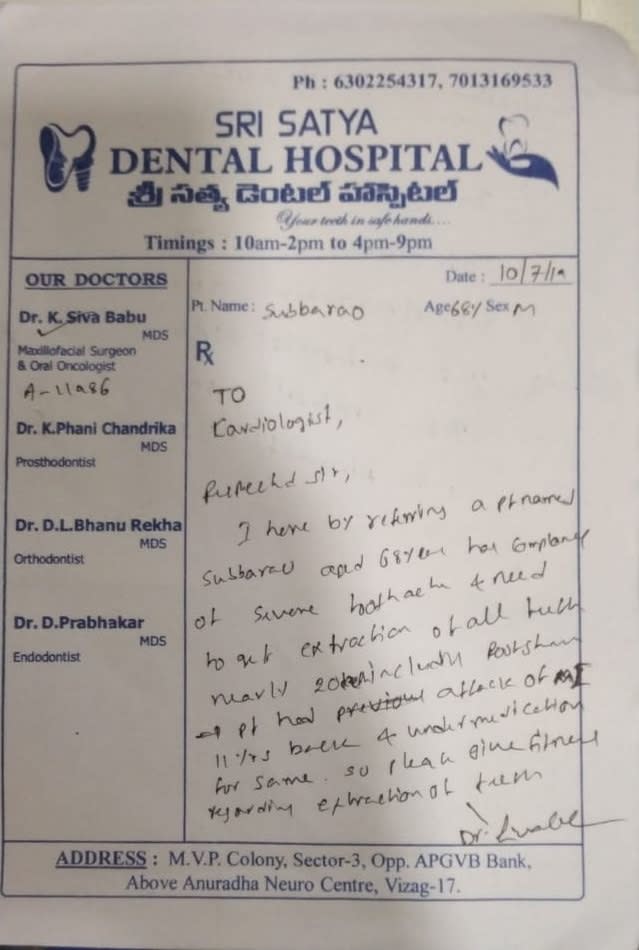 Ph : 6302254317, 7013169533
SRI SATYA
DENTAL HOSPITAL
శ్రీ సత్య డెంటల్ హాస్పిటల్
Your teeth in safe hands....
Timings : 10am-2pm to 4pm-9pm
OUR DOCTORS
Dr. K. Siva Babu
MDS
Maxillofacial Surgeon
& Oral Oncologist
A-11986
Dr. K.Phani Chandrika
MDS
Prosthodontist
Dr. D.L.Bhanu Rekha
MDS
Orthodontist
Dr. D.Prabhakar
MDS
Endodontist
Date : 10/7/19
Pt. Name : Subbarao Age 68y Sex M
Rx
TO
Cardiologist,
Respected sir,
I here by referring a pt named
Subbarao aged 68 years has complaint
of severe toothache & need
to get extraction of all teeth
nearly 20 including
pt had previous attack of MI
11 Yrs back & under medication
for same. so please give fitness
regarding extraction of teeth
Dr.
ADDRESS : M.V.P. Colony, Sector-3, Opp. APGVB Bank,
Above Anuradha Neuro Centre, Vizag-17.